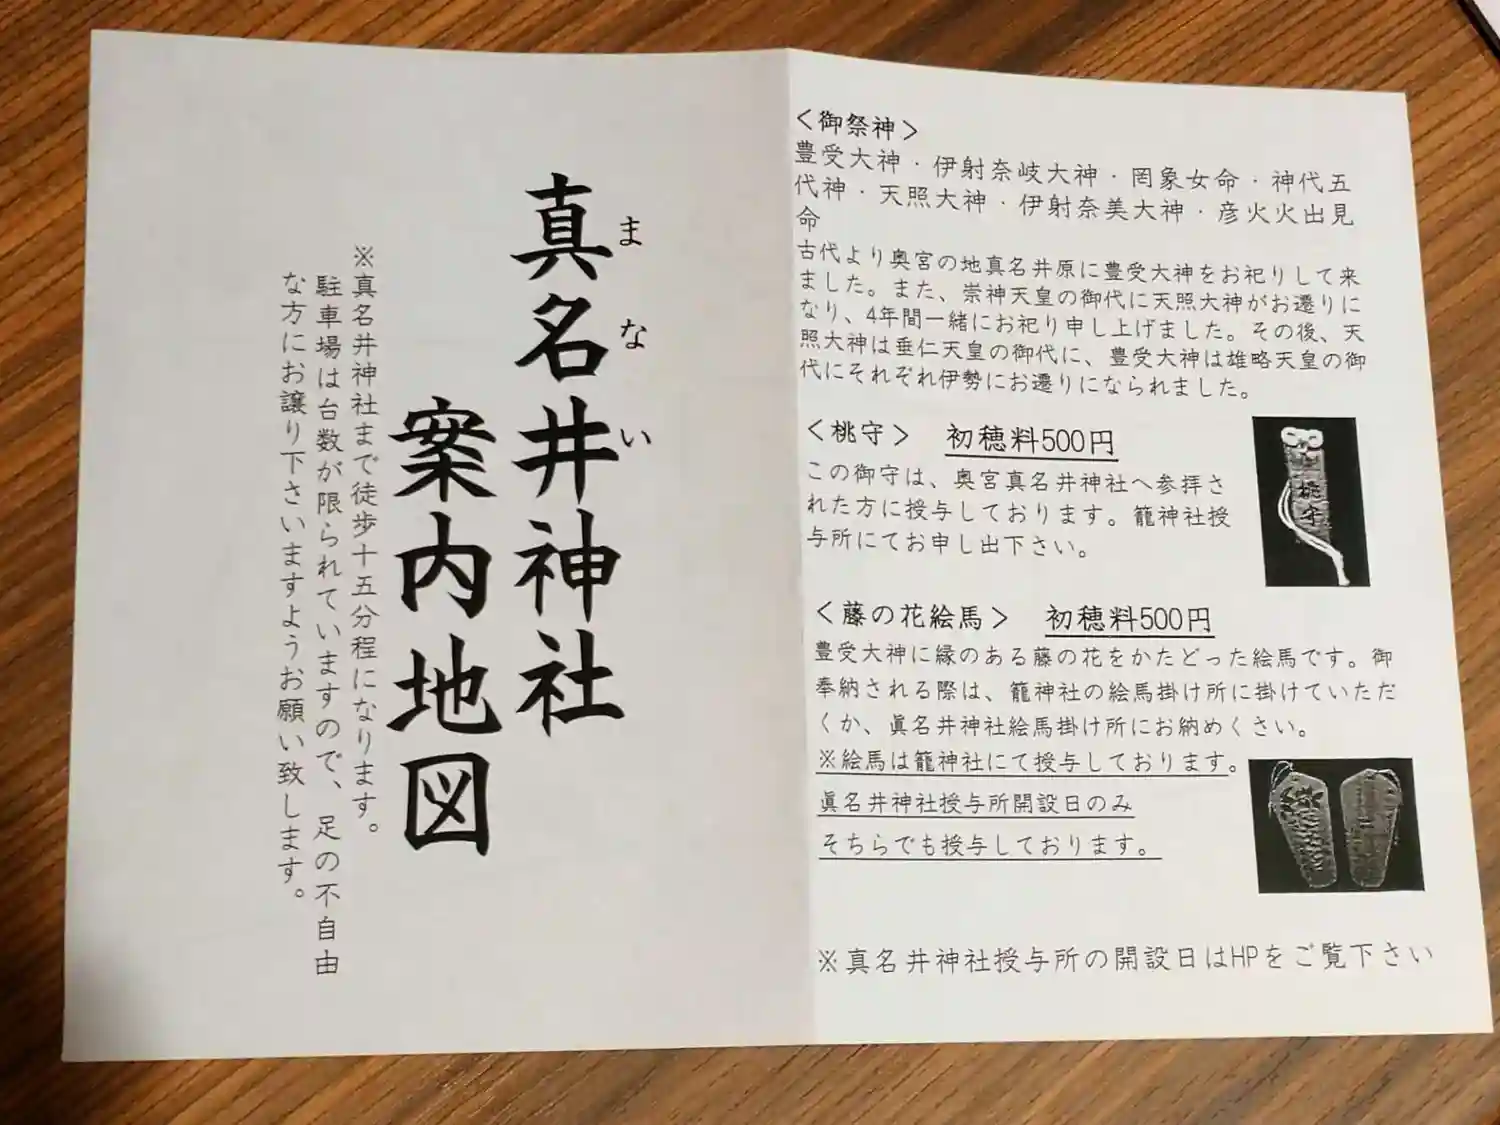 真名井神社
まない
案内地図
※真名井神社まで徒歩十五分程になります。
駐車場は台数が限られていますので、足の不自由
な方にお譲り下さいますようお願い致します。
<御祭神>
豊受大神・伊射奈岐大神・罔象女命・神代五
代神・天照大神・伊射奈美大神・彦火火出見
命
古代より奥宮の地真名井原に豊受大神をお祀りして来
ました。また、崇神天皇の御代に天照大神がお遷りに
なり、4年間一緒にお祀り申し上げました。その後、天
照大神は垂仁天皇の御代に、豊受大神は雄略天皇の御
代にそれぞれ伊勢にお遷りになられました。
<桃守> 初穂料500円
この御守は、奥宮真名井神社へ参拝さ
れた方に授与しております。籠神社授
与所にてお申し出下さい。
桃守
<藤の花絵馬> 初穂料500円
豊受大神に縁のある藤の花をかたどった絵馬です。御
奉納される際は、籠神社の絵馬掛け所に掛けていただ
くか、眞名井神社絵馬掛け所にお納めくさい。
※絵馬は籠神社にて授与しております。
眞名井神社授与所開設日のみ
そちらでも授与しております。
※真名井神社授与所の開設日はHPをご覧下さい